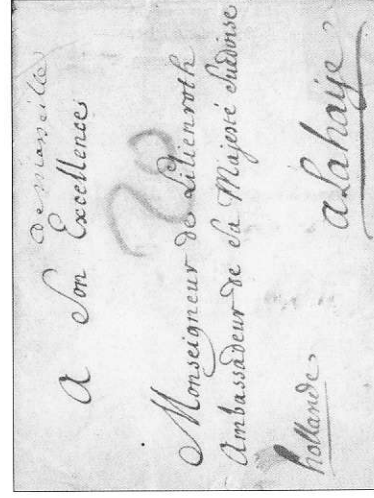 de marseille
A Son Excellence
20
Monseigneur de Lilienroth
Ambassadeur de Sa Majesté Suédoise
hollande
a Lahaije